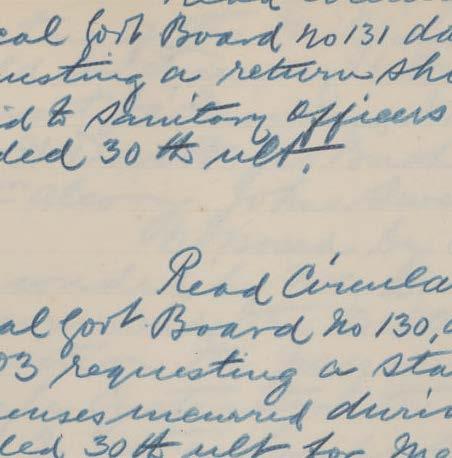 Read Circula
cal Govt Board No 131 da
uesting a return sho
id to Sanitary Officers
ded 30th ult.
Read Circula
al Govt Board No 130, d
03 requesting a sta
enses incurred durin
ded 30th ult for Me